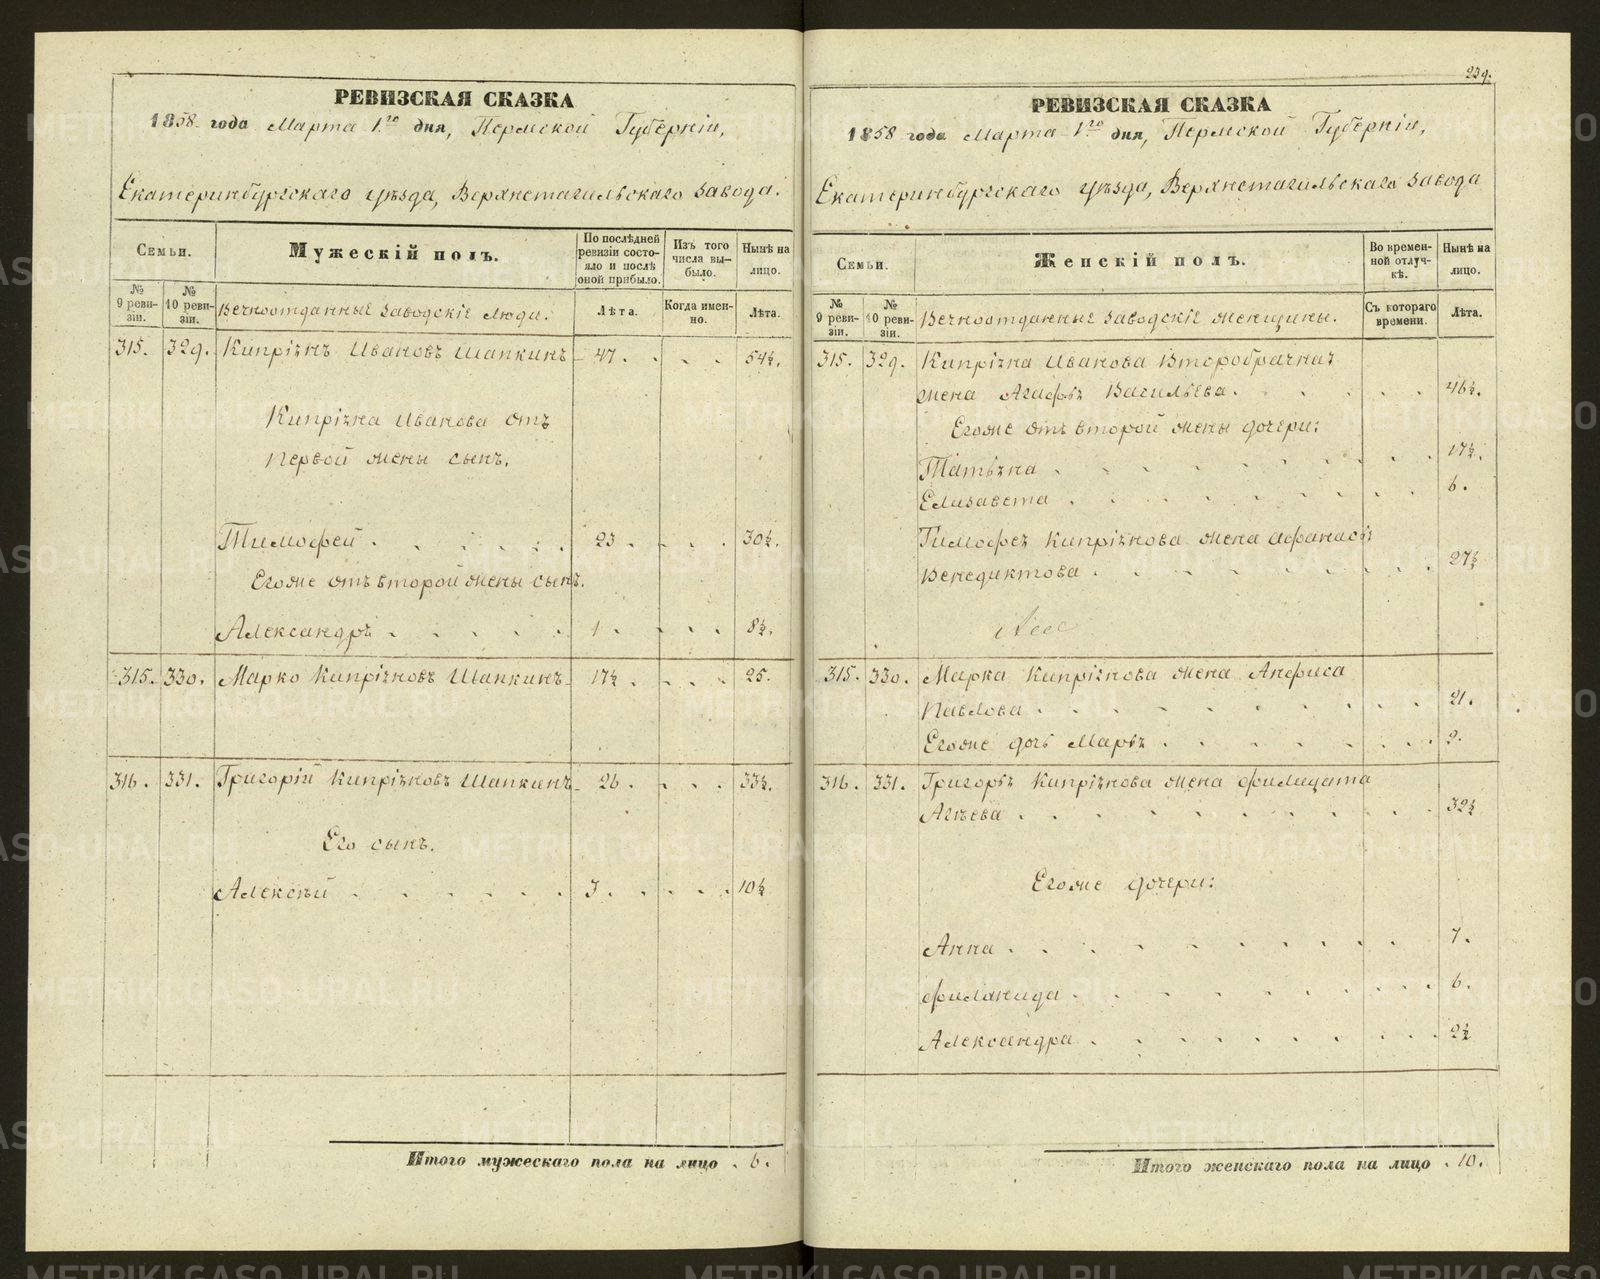 РЕВИЗСКАЯ СКАЗКА
1858 года Марта 1го дня, Пермской Губерніи,
Екатеринбургскаго уѣзда, Верхнетагильскаго завода.
Семьи.
Мужескій полъ.
По послѣдней ревизіи состояло и послѣ оной прибыло.
Изъ того числа выбыло.
Нынѣ на лицо.
№ 9 ревизіи.
№ 10 ревизіи.
Вечноотданные заводскіе люди.
Лѣта.
Когда именно.
Лѣта.
315. 329. Кипріянъ Ивановъ Шапкинъ 47. 54½.
Кипріяна Иванова отъ
первой жены сынъ.
Тимофей 23. 30½.
Егоже отъ второй жены сынъ.
Александръ 1. 8½.
315. 330. Марко Кипріяновъ Шапкинъ 17½. 25.
316. 331. Григорій Кипріяновъ Шапкинъ 26. 33½.
Его сынъ.
Алексѣй 3. 10½
Итого мужескаго пола на лицо 6.
239.
РЕВИЗСКАЯ СКАЗКА
1858 года Марта 1го дня, Пермской Губерніи,
Екатеринбургскаго уѣзда, Верхнетагильскаго завода
Семьи.
Женскій полъ.
Во временной отлучкѣ.
Нынѣ на лицо.
№ 9 ревизіи.
№ 10 ревизіи.
Вечноотданные заводскіе женщины.
Съ котораго времени.
Лѣта.
315. 329. Кипріяна Иванова второбрачная
жена Агафья Васильева. 46½.
Егоже отъ второй жены дочери:
Татьяна 17½.
Елизавета 6.
Тимофея Кипріянова жена Афанасья
Венедиктова 27½
315. 330. Марка Кипріянова жена Анфиса
Павлова 21.
Егоже дочь Марья 2.
316. 331. Григорья Кипріянова жена Филицата
Агѣева 32½
Егоже дочери:
Анна 7.
Филанида 6.
Александра 2½
Итого женскаго пола на лицо 10.
METRIKI.GASO-URAL.RU